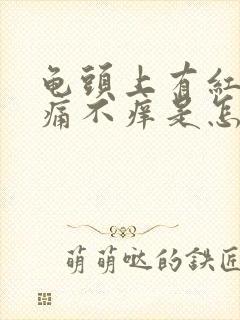 龟頭上有紅
痛不痒是怎
萌萌哒的鉄匠